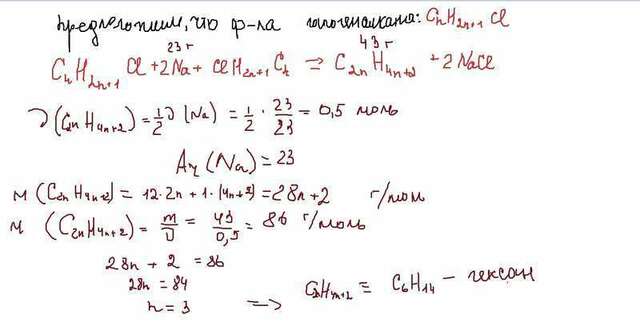 Предположим, что ф-ла галогеналкана: CnH2n+1 Cl
23 г 43 г
CnH2n+1 Cl + 2Na + ClH2n+1Cn => C2nH4n+2 + 2NaCl
ν(C2nH4n+2) = 1/2 ν(Na) = 1/2 · 23/23 = 0,5 моль
Ar(Na) = 23
M(C2nH4n+2) = 12·2n + 1·(4n+2) = 28n+2 г/моль
M (C2nH4n+2) = m/ν = 43/0,5 = 86 г/моль
28n + 2 = 86
28n = 84
n = 3 => C2nH4n+2 = C6H14 – гексан